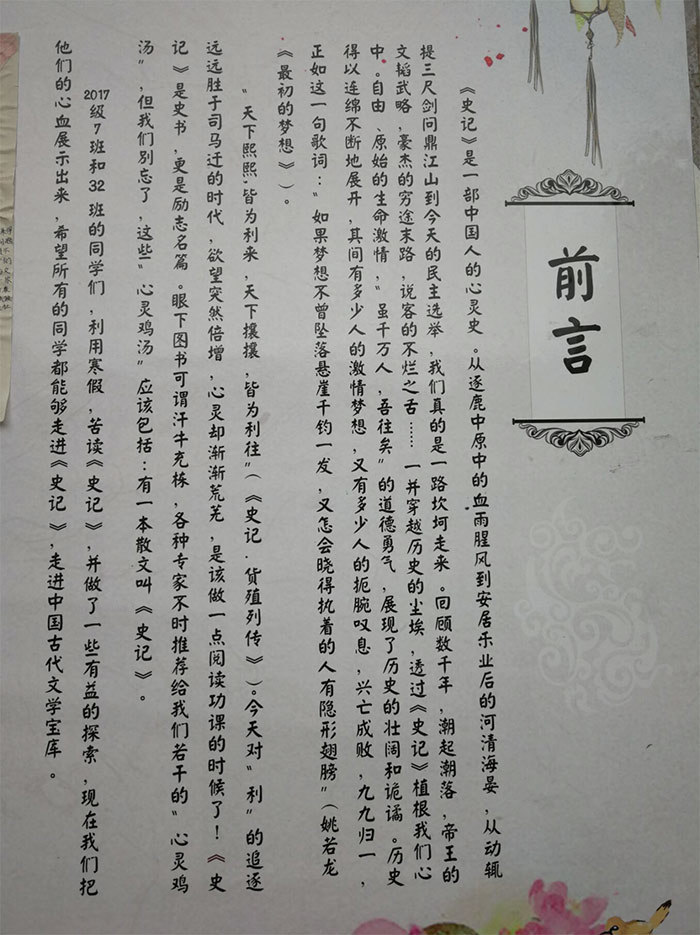 前言
《史记》是一部中国人的心灵史。从逐鹿中原中的血雨腥风到安居乐业后的河清海晏，从动辄
提三尺剑问鼎江山到今天的民主选举，我们真的是一路坎坷走来。回顾数千年，潮起潮落，帝王的
文韬武略，豪杰的穷途末路，说客的不烂之舌……一并穿越历史的尘埃，透过《史记》植根我们心
中。自由、原始的生命激情，“虽千万人，吾往矣”的道德勇气，展现了历史的壮阔和诡谲。历史
得以连绵不断地展开，其间有多少人的激情梦想，又有多少人的扼腕叹息，兴亡成败，九九归一，
正如这一句歌词：“如果梦想不曾坠落悬崖千钧一发，又怎会晓得执着的人有隐形翅膀”（姚若龙
《最初的梦想》）。
“天下熙熙，皆为利来，天下攘攘，皆为利往”（《史记·货殖列传》）。今天对“利”的追逐
远远胜于司马迁的时代，欲望突然倍增，心灵却渐渐荒芜，是该做一点阅读功课的时候了！《史
记》是史书，更是励志名篇。眼下图书可谓汗牛充栋，各种专家不时推荐给我们若干的“心灵鸡
汤”，但我们别忘了，这些“心灵鸡汤”应该包括：有一本散文叫《史记》。
2017级7班和32班的同学们，利用寒假，苦读《史记》，并做了一些有益的探索，现在我们把
他们的心血展示出来，希望所有的同学都能够走进《史记》，走进中国古代文学宝库。